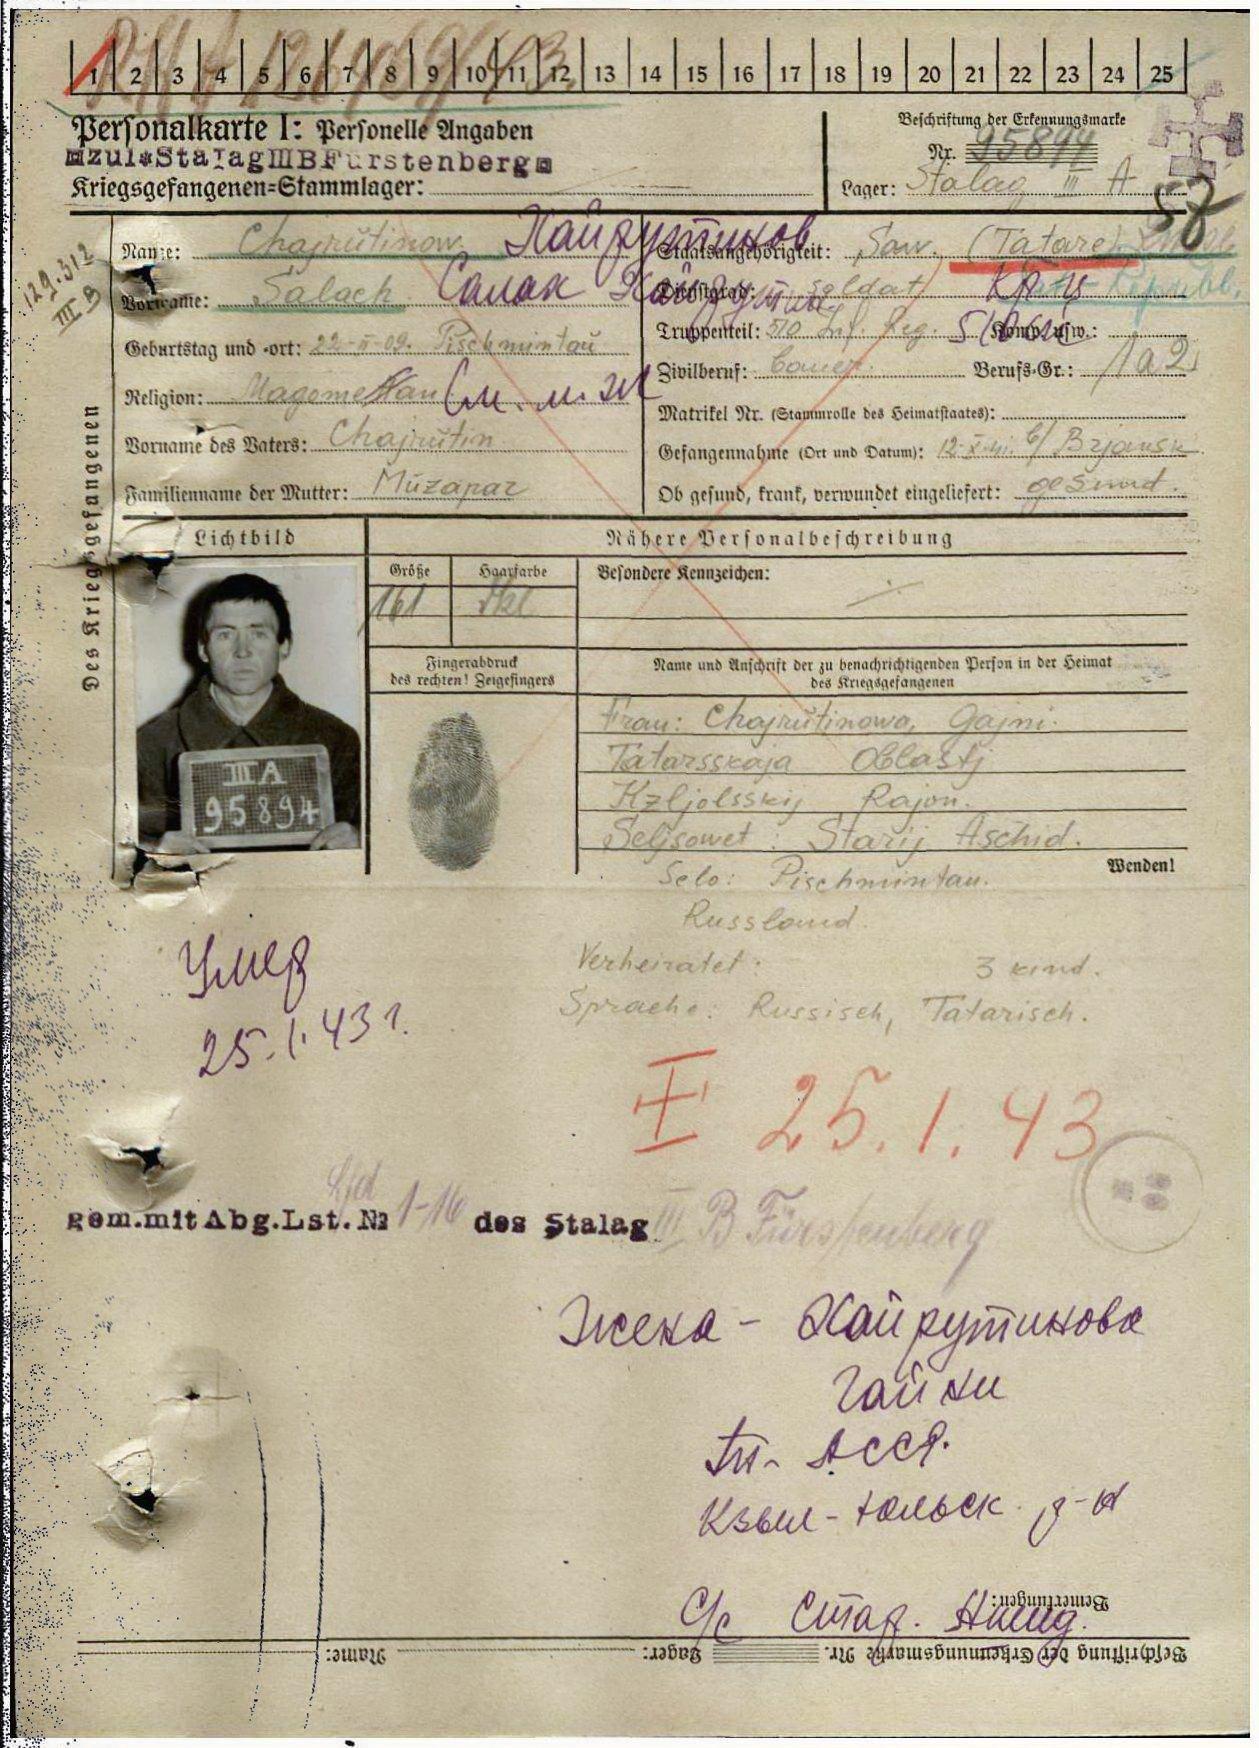 1 2 3 4 5 6 7 8 9 10 11 12 13 14 15 16 17 18 19 20 21 22 23 24 25
Personalkarte I: Personelle Angaben
zul*Stalag III B Fürstenberg
Kriegsgefangenen=Stammlager:
Beschriftung der Erkennungsmarke
Nr. 95894
Lager: Stalag III A
57
129.312
III B
Des Kriegsgefangenen
Name: Chajrutinow Хайрутинов
Vorname: Salach Салах Хайрутин
Geburtstag und -ort: 22-II-09. Pischmintau
Religion:
Vorname des Vaters: Chajrutin
Familienname der Mutter: Muzapar
Staatsangehörigkeit: Sow. (Tatare)
Dienstgrad: Soldat
Truppenteil: 510 Inf. Reg. Komp. usw.:
Zivilberuf: Bauer. Berufs-Gr.: 1a2
Matrikel Nr. (Stammrolle des Heimatstaates):
Gefangennahme (Ort und Datum): 12-X-41. b/ Brjansk
Ob gesund, krank, verwundet eingeliefert: gesund.
Lichtbild
Nähere Personalbeschreibung
Größe Haarfarbe Besondere Kennzeichen:
161 dkl
III A
95894
Fingerabdruck
des rechten! Zeigefingers
Name und Anschrift der zu benachrichtigenden Person in der Heimat
des Kriegsgefangenen
Frau: Chajrutinowa, Gajni.
Tatarsskaja Oblastj
Kzljolsskij Rajon.
Seljsowet: Starij Aschid.
Wenden!
Selo: Pischmintau.
Russland.
Verheiratet. 3 kind.
Sprache: Russisch, Tatarisch.
Умер
25.1.43 г.
25.1.43
gem.mit Abg.Lst.№ 1-16 des Stalag III B Fürstenberg
Жена - Хайрутинова
Гайни
Тт. АССР.
Кзыл-Юльск. р-н
С/с Стар. Ашид.
Bemerkungen:
Name: Lager: Beschriftung der Erkennungsmarke Nr.